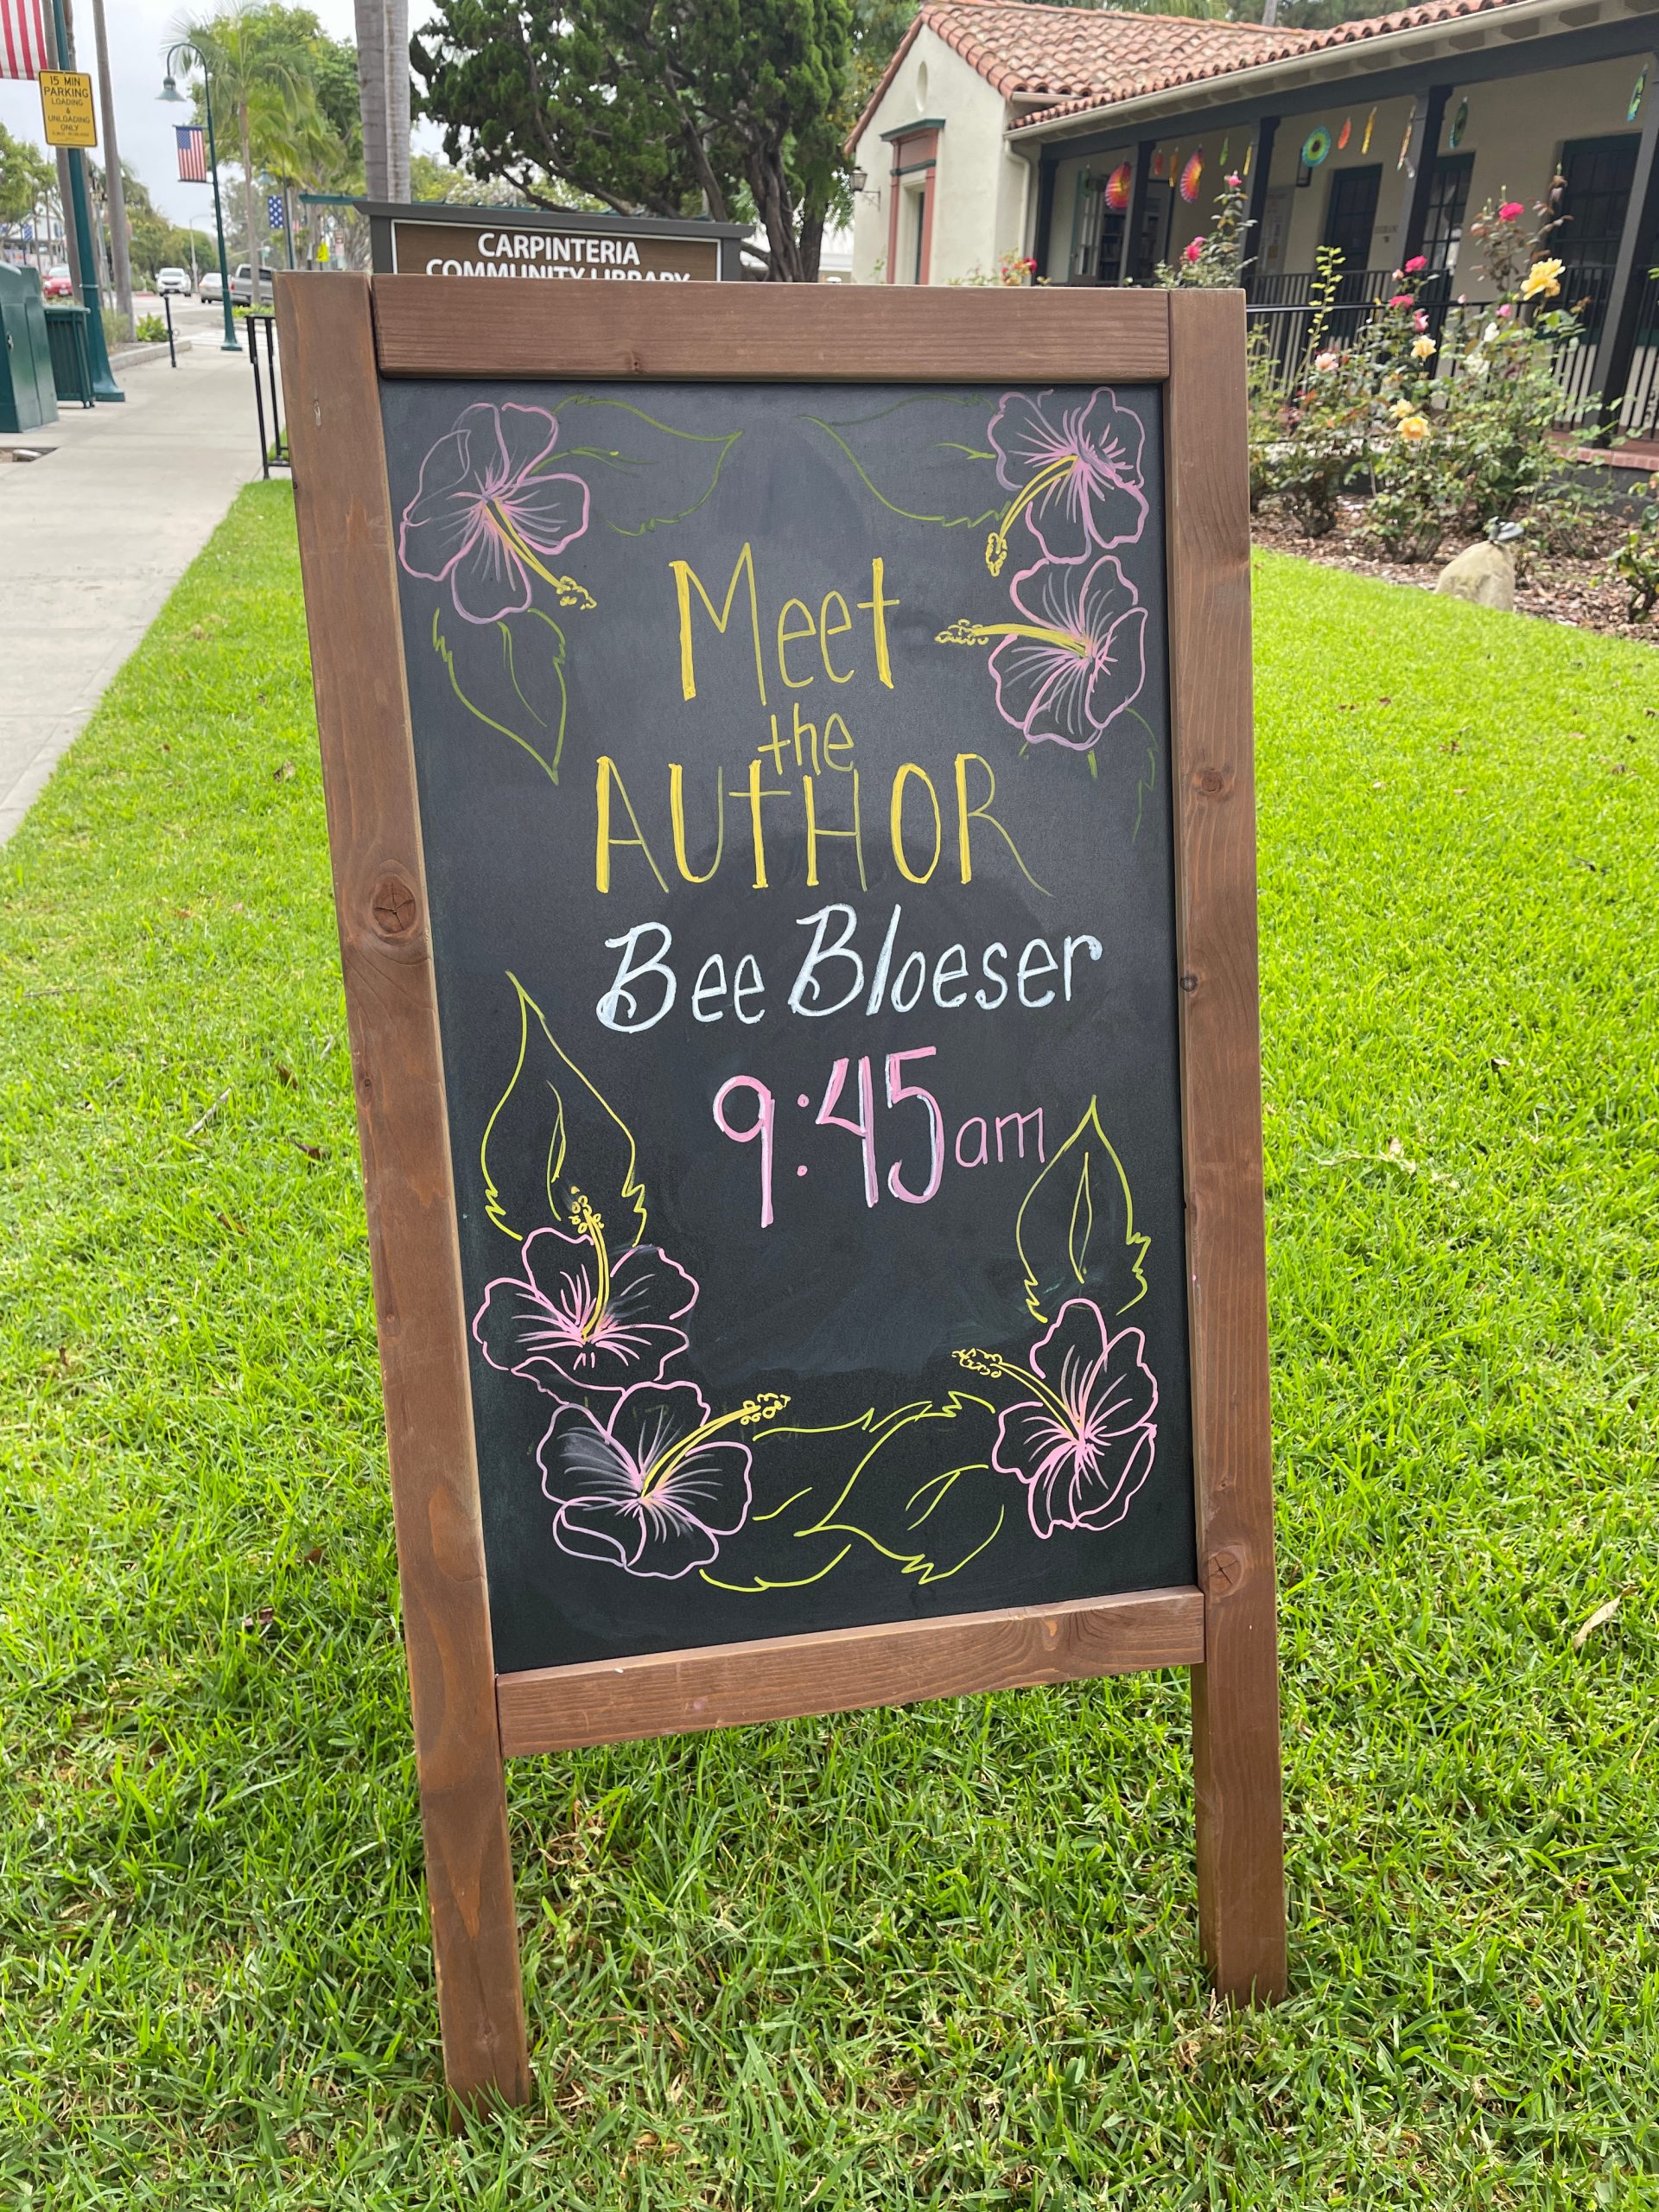 15 MIN
PARKING
LOADING
&
UNLOADING
ONLY
CARPINTERIA
COMMUNITY LIBRARY
Meet
the
AUTHOR
Bee Bloeser
9:45am